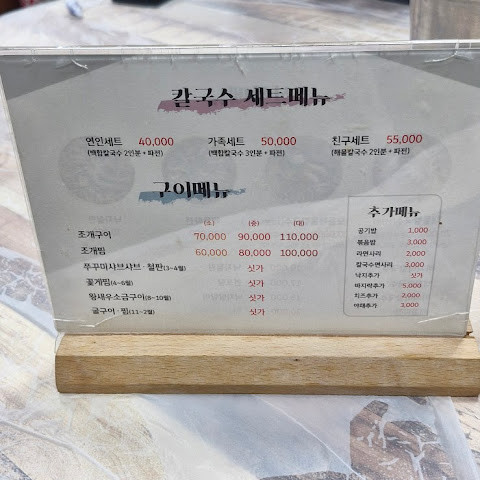 칼국수 세트메뉴
연인세트 40,000 가족세트 50,000 친구세트 55,000
(백합칼국수 2인분 + 파전) (백합칼국수 3인분 + 파전) (해물칼국수 2인분 + 파전)
구이메뉴
(소) (중) (대)
조개구이 70,000 90,000 110,000
조개찜 60,000 80,000 100,000
쭈꾸미샤브샤브 · 철판(3~4월) 싯가
꽃게찜(4~6월) 싯가
왕새우소금구이(8~10월) 싯가
굴구이 · 찜(11~2월) 싯가
추가메뉴
공기밥 1,000
볶음밥 3,000
라면사리 2,000
칼국수면사리 3,000
낙지추가 싯가
바지락추가 5,000
치즈추가 2,000
야채추가 3,000